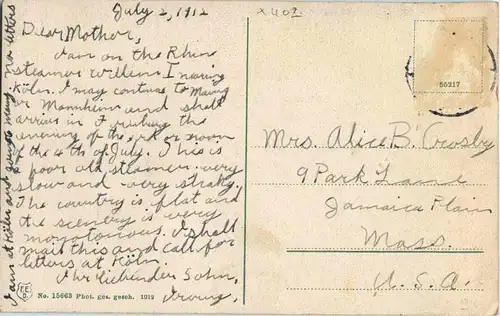 July 2, 1912
X402
Dear Mother,
I am on the Rhine
steamer Willem I nearing
Köln. I may continue to Mainz
or Mannheim and shall
arrive in Freiburg the
evening of the 3rd or noon
of the 4th of July. This is
a poor old steamer very
slow and very shaky.
The country is flat and
the scenery is very
monotonous. I shall
mail this and call for
letters at Köln.
Ihr liebender Sohn,
Irving.
I am at Köln and going to Mainz. No letters
55217
Mrs. Alice B. Crosby
9 Park Lane
Jamaica Plain
Mass.
U.S.A.
No. 15663 Phot. ges. gesch. 1912